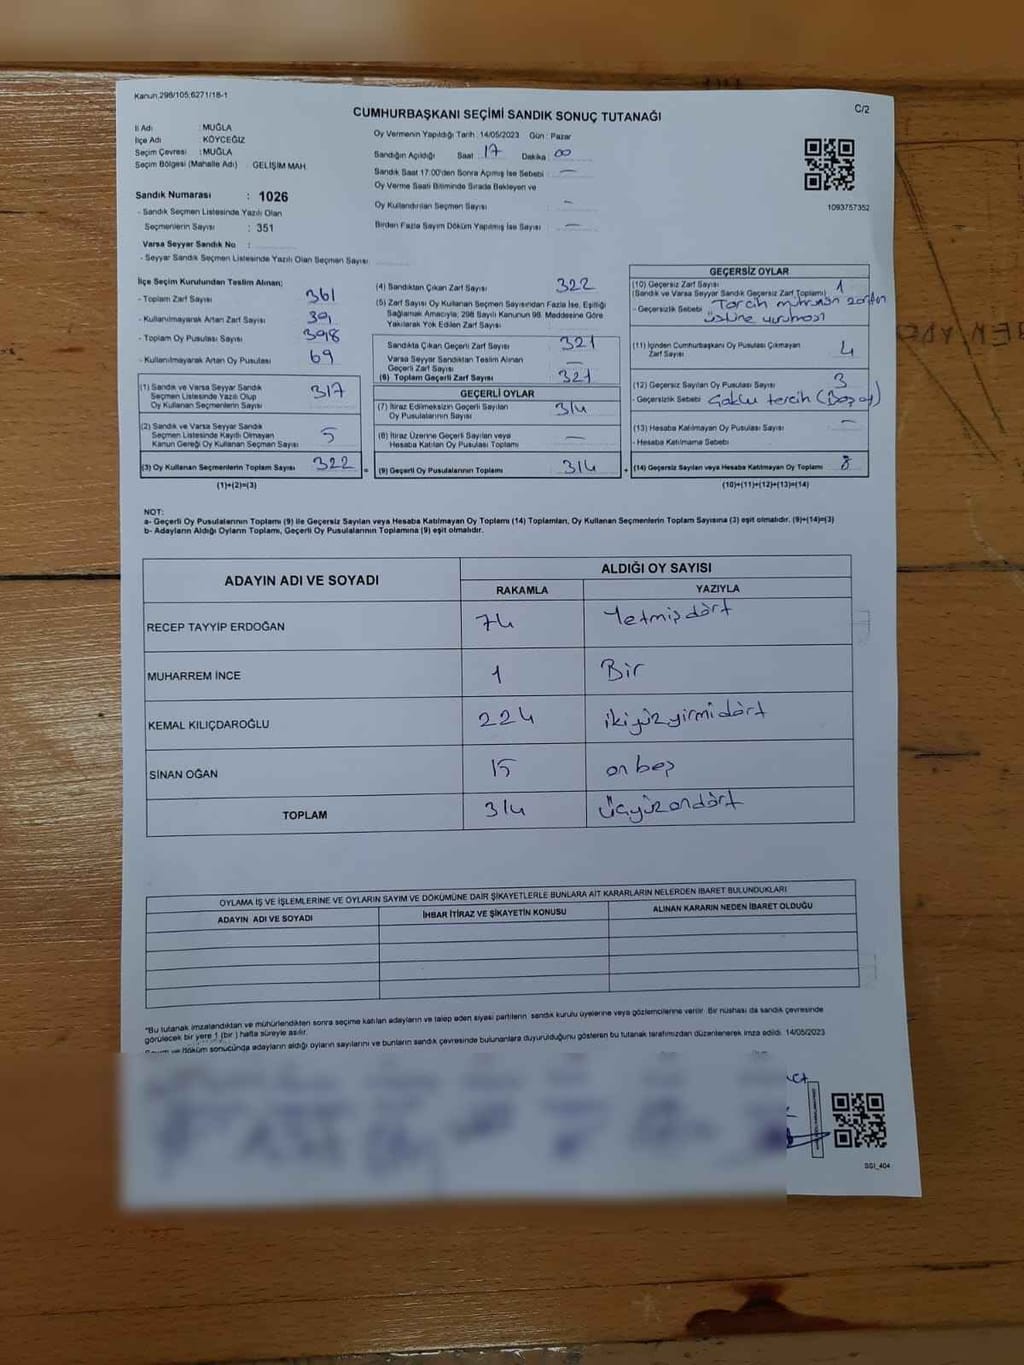 Kanun.298/105;6271/18-1
C/2
CUMHURBAŞKANI SEÇİMİ SANDIK SONUÇ TUTANAĞI
İl Adı : MUĞLA
İlçe Adı : KÖYCEĞİZ
Seçim Çevresi : MUĞLA
Seçim Bölgesi (Mahalle Adı) GELİŞİM MAH.
Sandık Numarası : 1026
- Sandık Seçmen Listesinde Yazılı Olan
Seçmenlerin Sayısı : 351
Varsa Seyyar Sandık No :
- Seyyar Sandık Seçmen Listesinde Yazılı Olan Seçmen Sayısı
Oy Vermenin Yapıldığı Tarih :14/05/2023 Gün : Pazar
Sandığın Açıldığı Saat 17 Dakika 00
Sandık Saat 17:00'den Sonra Açılmış İse Sebebi : —
Oy Verme Saati Bitiminde Sırada Bekleyen ve
Oy Kullandırılan Seçmen Sayısı —
Birden Fazla Sayım Döküm Yapılmış İse Sayısı —
1093757352
İlçe Seçim Kurulundan Teslim Alınan;
- Toplam Zarf Sayısı 361
- Kullanılmayarak Artan Zarf Sayısı 39
- Toplam Oy Pusulası Sayısı 398
- Kullanılmayarak Artan Oy Pusulası 69
(1) Sandık ve Varsa Seyyar Sandık
Seçmen Listesinde Yazılı Olup
Oy Kullanan Seçmenlerin Sayısı 317
(2) Sandık ve Varsa Seyyar Sandık
Seçmen Listesinde Kayıtlı Olmayan
Kanun Gereği Oy Kullanan Seçmen Sayısı 5
(3) Oy Kullanan Seçmenlerin Toplam Sayısı 322 =
(1)+(2)=(3)
(4) Sandıktan Çıkan Zarf Sayısı 322
(5) Zarf Sayısı Oy Kullanan Seçmen Sayısından Fazla İse, Eşitliği
Sağlamak Amacıyla, 298 Sayılı Kanunun 98. Maddesine Göre
Yakılarak Yok Edilen Zarf Sayısı
Sandıkta Çıkan Geçerli Zarf Sayısı 321
Varsa Seyyar Sandıktan Teslim Alınan
Geçerli Zarf Sayısı —
(6) Toplam Geçerli Zarf Sayısı 321
GEÇERLİ OYLAR
(7) İtiraz Edilmeksizin Geçerli Sayılan
Oy Pusulalarının Sayısı 314
(8) İtiraz Üzerine Geçerli Sayılan veya
Hesaba Katılan Oy Pusulası Toplamı —
(9) Geçerli Oy Pusulalarının Toplamı 314 +
GEÇERSİZ OYLAR
(10) Geçersiz Zarf Sayısı 1
(Sandık ve Varsa Seyyar Sandık Geçersiz Zarf Toplamı)
- Geçersizlik Sebebi Tercih mührünün zarfın
üstüne vurulması
(11) İçinden Cumhurbaşkanı Oy Pusulası Çıkmayan
Zarf Sayısı 4
(12) Geçersiz Sayılan Oy Pusulası Sayısı 3
- Geçersizlik Sebebi Çoklu tercih (Boş oy)
(13) Hesaba Katılmayan Oy Pusulası Sayısı —
- Hesaba Katılmama Sebebi
(14) Geçersiz Sayılan veya Hesaba Katılmayan Oy Toplamı 8
(10)+(11)+(12)+(13)=(14)
NOT:
a- Geçerli Oy Pusulalarının Toplamı (9) ile Geçersiz Sayılan veya Hesaba Katılmayan Oy Toplamı (14) Toplamları, Oy Kullanan Seçmenlerin Toplam Sayısına (3) eşit olmalıdır. (9)+(14)=(3)
b- Adayların Aldığı Oyların Toplamı, Geçerli Oy Pusulalarının Toplamına (9) eşit olmalıdır.
ADAYIN ADI VE SOYADI ALDIĞI OY SAYISI
RAKAMLA YAZIYLA
RECEP TAYYİP ERDOĞAN 74 Yetmişdört
MUHARREM İNCE 1 Bir
KEMAL KILIÇDAROĞLU 224 ikiyüzyirmidört
SİNAN OĞAN 15 onbeş
TOPLAM 314 üçyüzondört
OYLAMA İŞ VE İŞLEMLERİNE VE OYLARIN SAYIM VE DÖKÜMÜNE DAİR ŞİKAYETLERLE BUNLARA AİT KARARLARIN NELERDEN İBARET BULUNDUKLARI
ADAYIN ADI VE SOYADI İHBAR İTİRAZ VE ŞİKAYETİN KONUSU ALINAN KARARIN NEDEN İBARET OLDUĞU
"Bu tutanak imzalandıktan ve mühürlendikten sonra seçime katılan adayların ve talep eden siyasi partilerin sandık kurulu üyelerine veya gözlemcilerine verilir. Bir nüshası da sandık çevresinde
görülecek bir yere 1 (bir) hafta süreyle asılır.
Sayım ve döküm sonucunda adayların aldığı oyların sayılarını ve bunların sandık çevresinde bulunanlara duyurulduğunu gösteren bu tutanak tarafımızdan düzenlenerek imza edildi. 14/05/2023
SSI_404